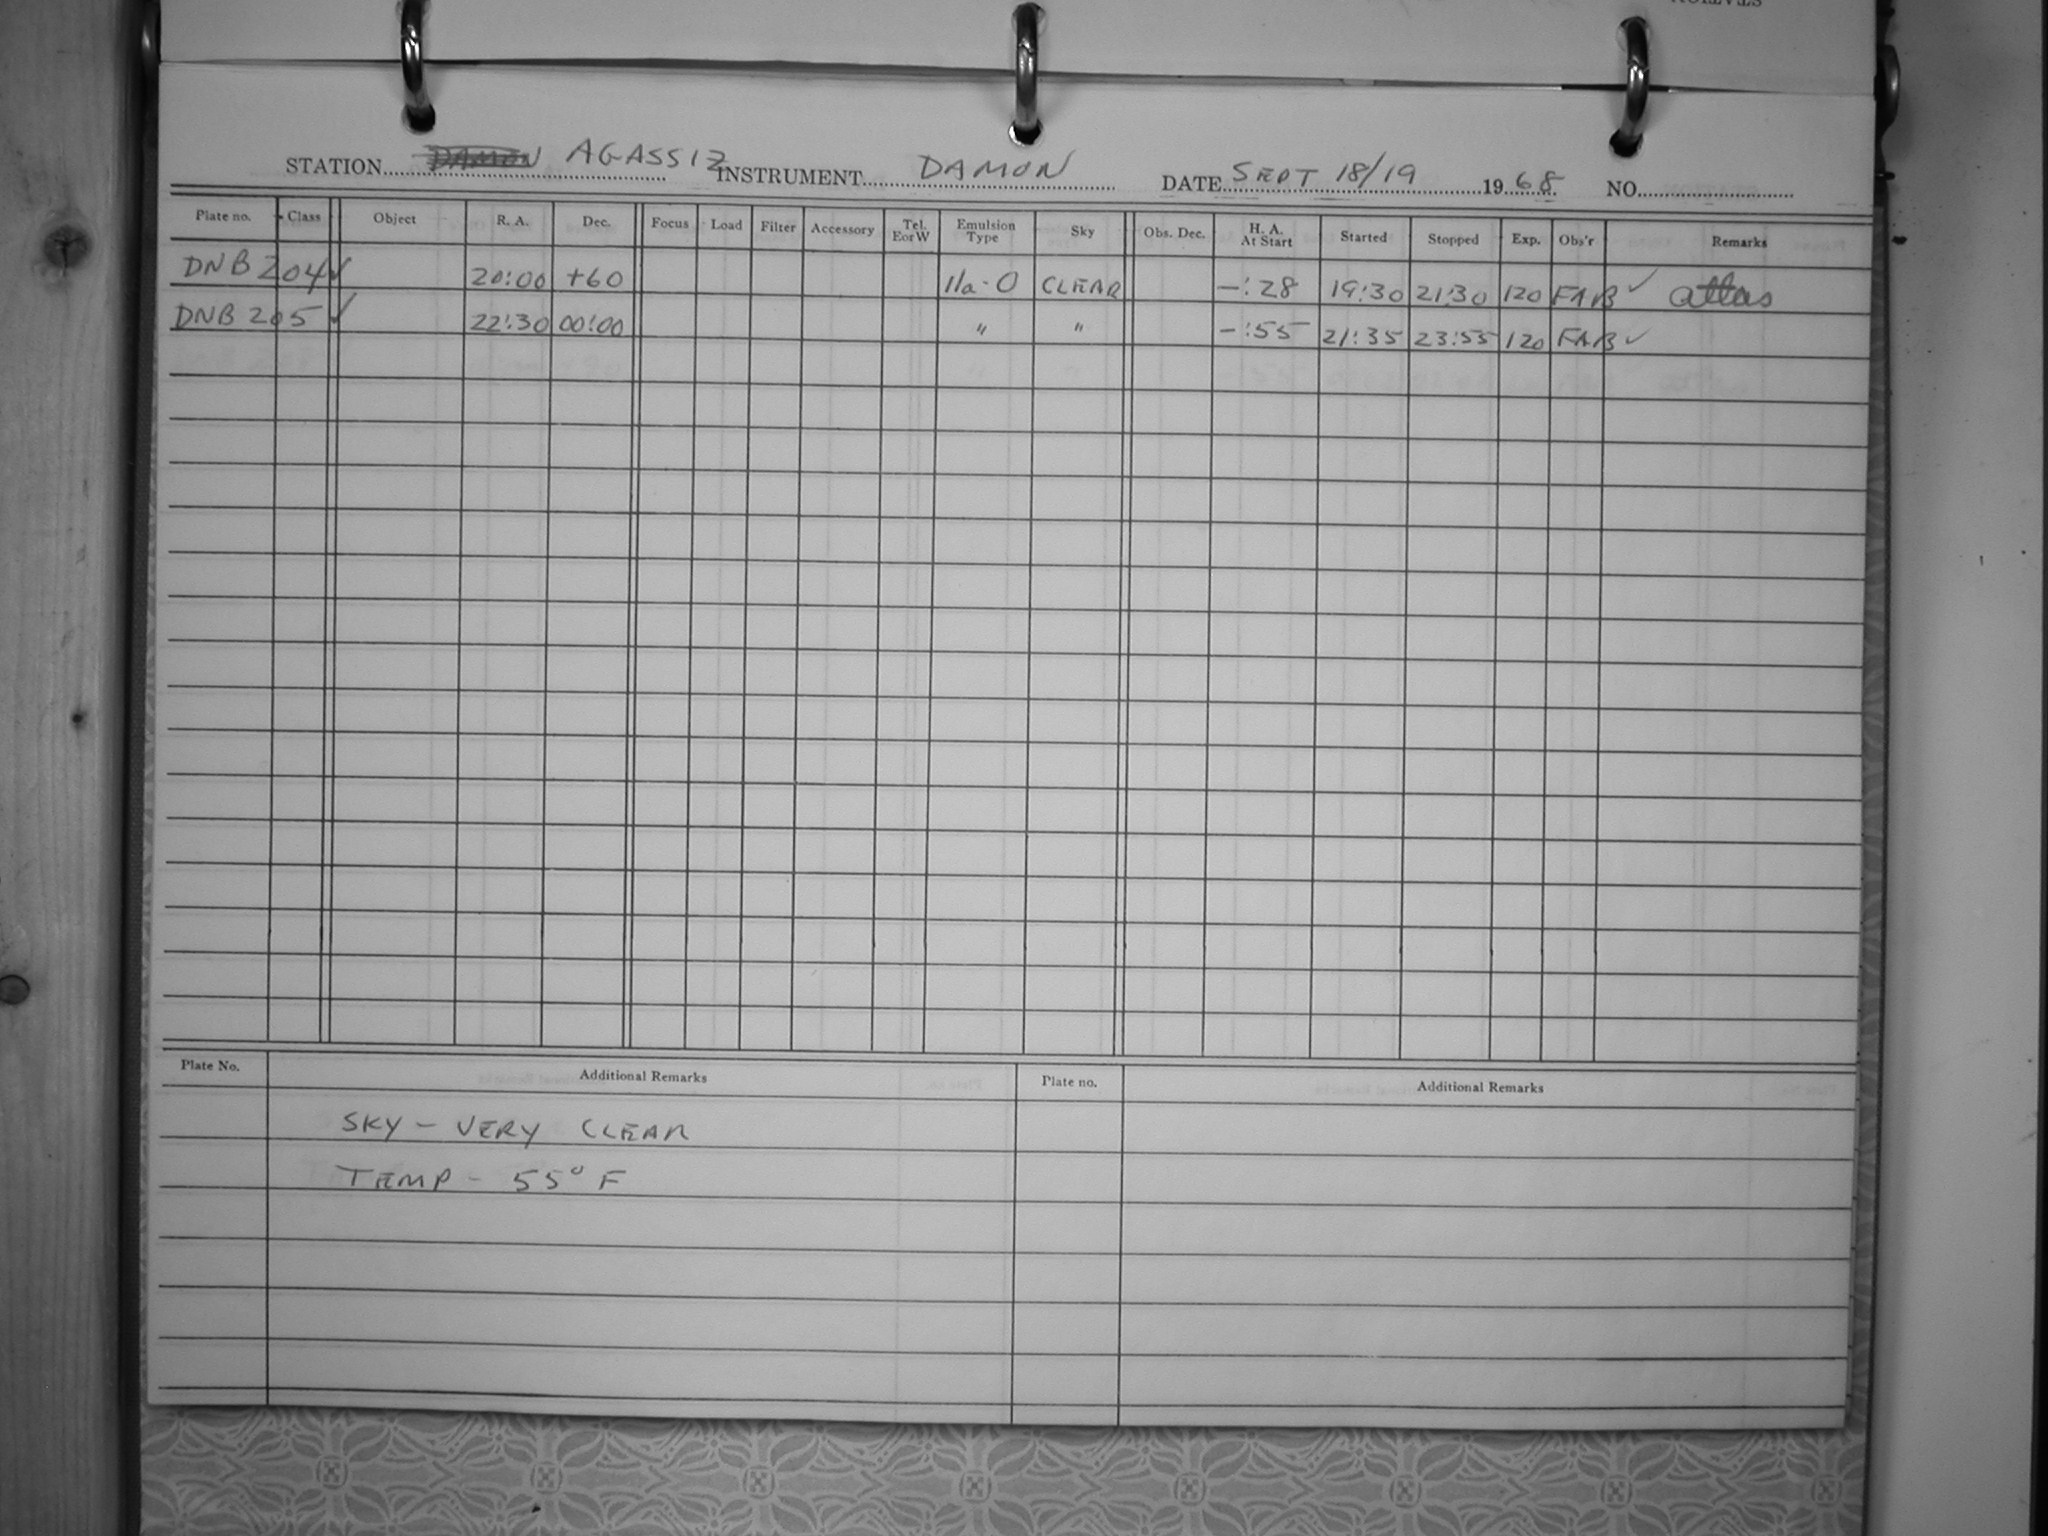 STATION DAMON AGASSIZ INSTRUMENT DAMON DATE SEPT 18/19 1968 NO.
Plate no. Class Object R. A. Dec. Focus Load Filter Accessory Tel. E or W Emulsion Type Sky Obs. Dec. H. A. At Start Started Stopped Exp. Obs'r Remarks
DNB 204 ✓ 20:00 +60 IIa-O CLEAR -:28 19:30 21:30 120 FAB ✓ atlas
DNB 205 ✓ 22:30 00:00 " " -:55 21:35 23:55 120 FAB ✓
Plate No. Additional Remarks Plate no. Additional Remarks
SKY - VERY CLEAR
TEMP - 55° F